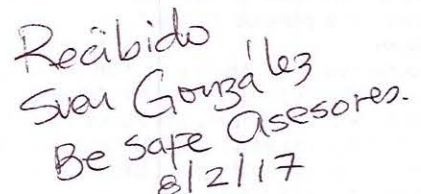 Recibido
Sven González
Be safe asesores.
8/2/17